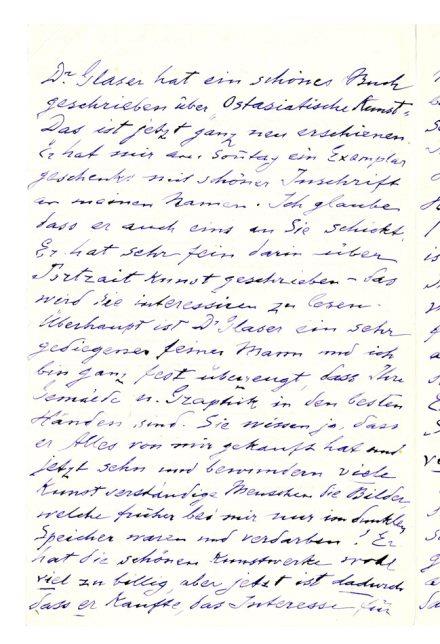 Dr Glaser hat ein schönes Buch
geschrieben über "Ostasiatische Kunst".
Das ist jetzt ganz neu erschienen.
Er hat mir am Sontag ein Exemplar
geschenkt mit schöner Inschrift
an meinen Namen. Ich glaube
dass er auch eins an Sie schickt.
Er hat sehr fein darin über
Portrait Kunst geschrieben – das
wird Sie interessiren zu lesen.
Überhaupt ist Dr Glaser ein sehr
gediegener feiner Mann und ich
bin ganz fest überzeugt, dass Ihre
Gemälde u. Graphik in den besten
Händen sind. Sie wissen ja, dass
er Alles von mir gekauft hat und
jetzt sehn und bewundern viele
Kunstverständige Menschen die Bilder
welche früher bei mir nur im dunklen
Speicher waren und verdarben! Er
hat die schönen Kunstwerke wohl
viel zu billig, aber jetzt ist dadurch
dass er kaufte, das Interesse für